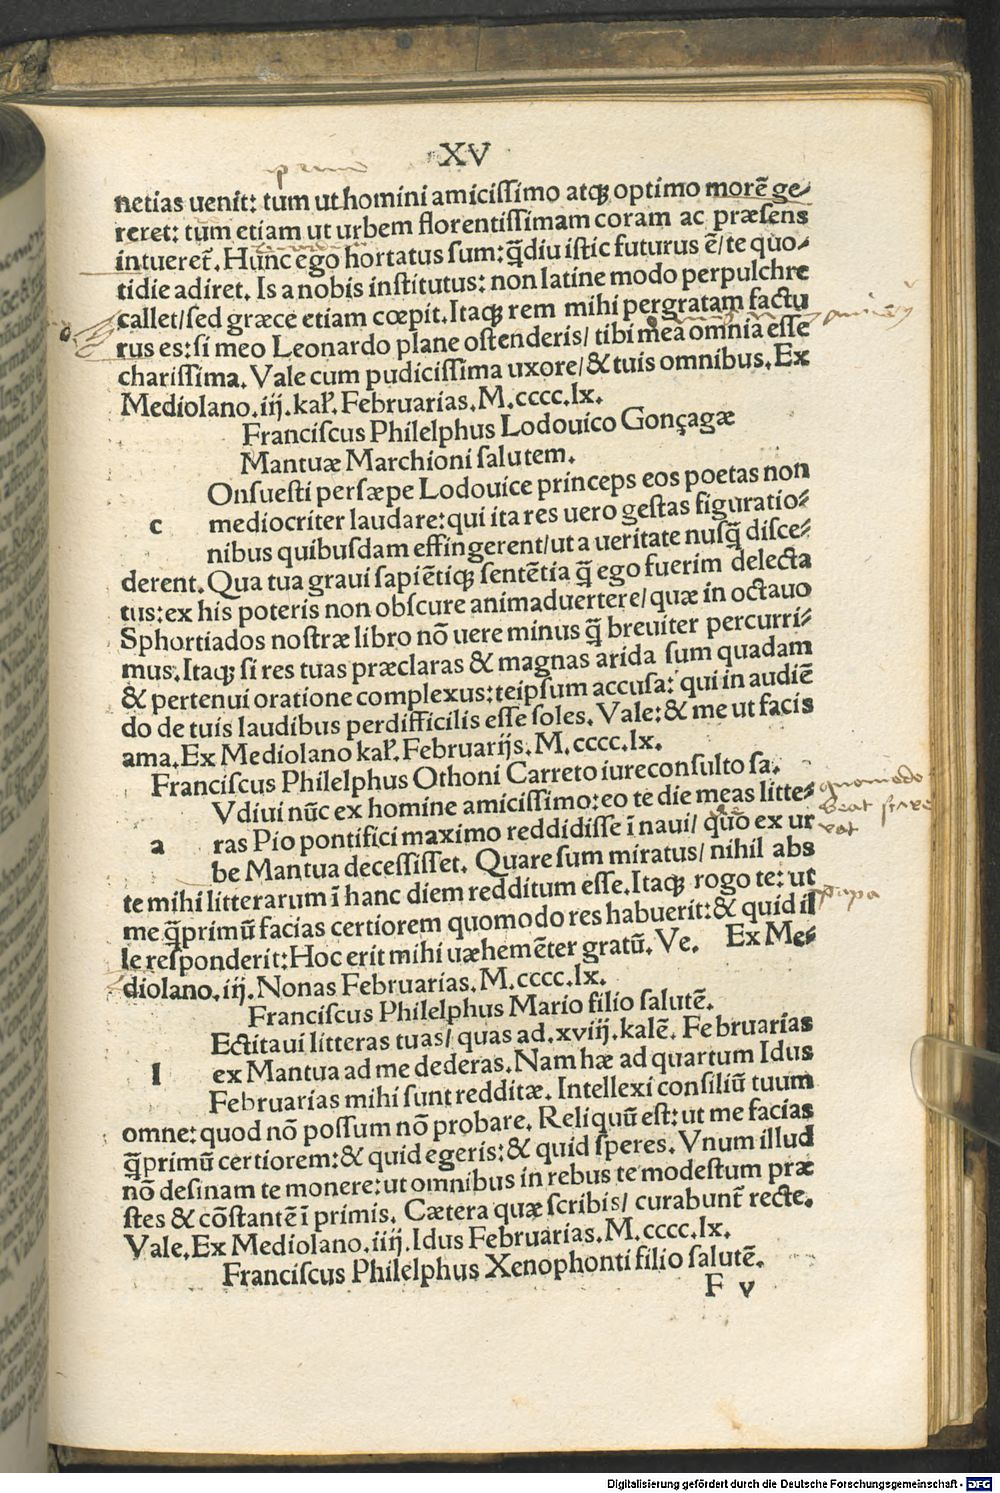 XV
netias uenit: tum ut homini amicissimo atqꝫ optimo morē ge⸗
reret: tum etiam ut urbem florentissimam coram ac præsens
intueret̄. Hunc ego hortatus sum: q̄diu istic futurus ē/ te quo⸗
tidie adiret. Is a nobis institutus: non latine modo perpulchre
callet/ sed græce etiam cœpit. Itaqꝫ rem mihi pergratam factu
rus es: si meo Leonardo plane ostenderis/ tibi mea omnia esse
charissima. Vale cum pudicissima uxore/ & tuis omnibus. Ex
Mediolano. iij. kal̄. Februarias. M. cccc. lx.
Franciscus Philelphus Lodouico Gonçagæ
Mantuæ Marchioni salutem.
Onsuesti persæpe Lodouice princeps eos poetas non
c mediocriter laudare: qui ita res uero gestas figuratio⸗
nibus quibusdam effingerent/ ut a ueritate nusq̄ disce⸗
derent. Qua tua graui sapiētiqꝫ sentētia q̄ ego fuerim delecta
tus: ex his poteris non obscure animaduertere/ quæ in octauo
Sphortiados nostræ libro nō uere minus q̄ breuiter percurri⸗
mus. Itaqꝫ si res tuas præclaras & magnas arida sum quadam
& pertenui oratione complexus: teipsum accusa: qui in audiē
do de tuis laudibus perdifficilis esse soles. Vale: & me ut facis
ama. Ex Mediolano kal̄. Februarijs. M. cccc. lx.
Franciscus Philelphus Othoni Carreto iureconsulto sa.
Vdiui nūc ex homine amicissimo: eo te die meas litte⸗
a ras Pio pontifici maximo reddidisse ī naui/ quo ex ur
be Mantua decessisset. Quare sum miratus/ nihil abs
te mihi litterarum ī hanc diem redditum esse. Itaqꝫ rogo te: ut
papa
me q̄primū facias certiorem quomodo res habuerit: & quid il
le responderit: Hoc erit mihi uæhemēter gratū. Ve. Ex Me⸗
diolano. iij. Nonas Februarias. M. cccc. lx.
Franciscus Philelphus Mario filio salutē.
Ectitaui litteras tuas/ quas ad. xviij. kalē. Februarias
l ex Mantua ad me dederas. Nam hæ ad quartum Idus
Februarias mihi sunt redditæ. Intellexi consiliū tuum
omne: quod nō possum nō probare. Reliquū est: ut me facias
q̄primū certiorem: & quid egeris: & quid speres. Vnum illud
nō desinam te monere: ut omnibus in rebus te modestum præ
stes & cōstantē ī primis. Cætera quæ scribis/ curabunt̄ recte.
Vale. Ex Mediolano. iiij. Idus Februarias. M. cccc. lx.
Franciscus Philelphus Xenophonti filio salutē.
F v
Digitalisierung gefördert durch die Deutsche Forschungsgemeinschaft - DFG